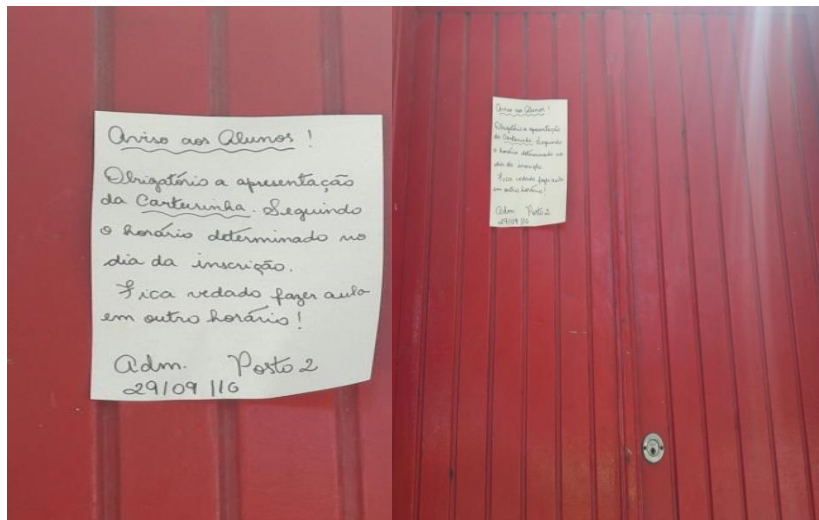 Aviso aos Alunos !
Obrigatório a apresentação
da Carteirinha. Seguindo
o horário determinado no
dia da inscrição.
Fica vedado fazer aula
em outro horário !
Adm. Posto 2
29/09/16
Aviso aos Alunos !
Obrigatório a apresentação
da Carteirinha. Seguindo
o horário determinado no
dia da inscrição.
Fica vedado fazer aula
em outro horário !
Adm. Posto 2
29/09/16